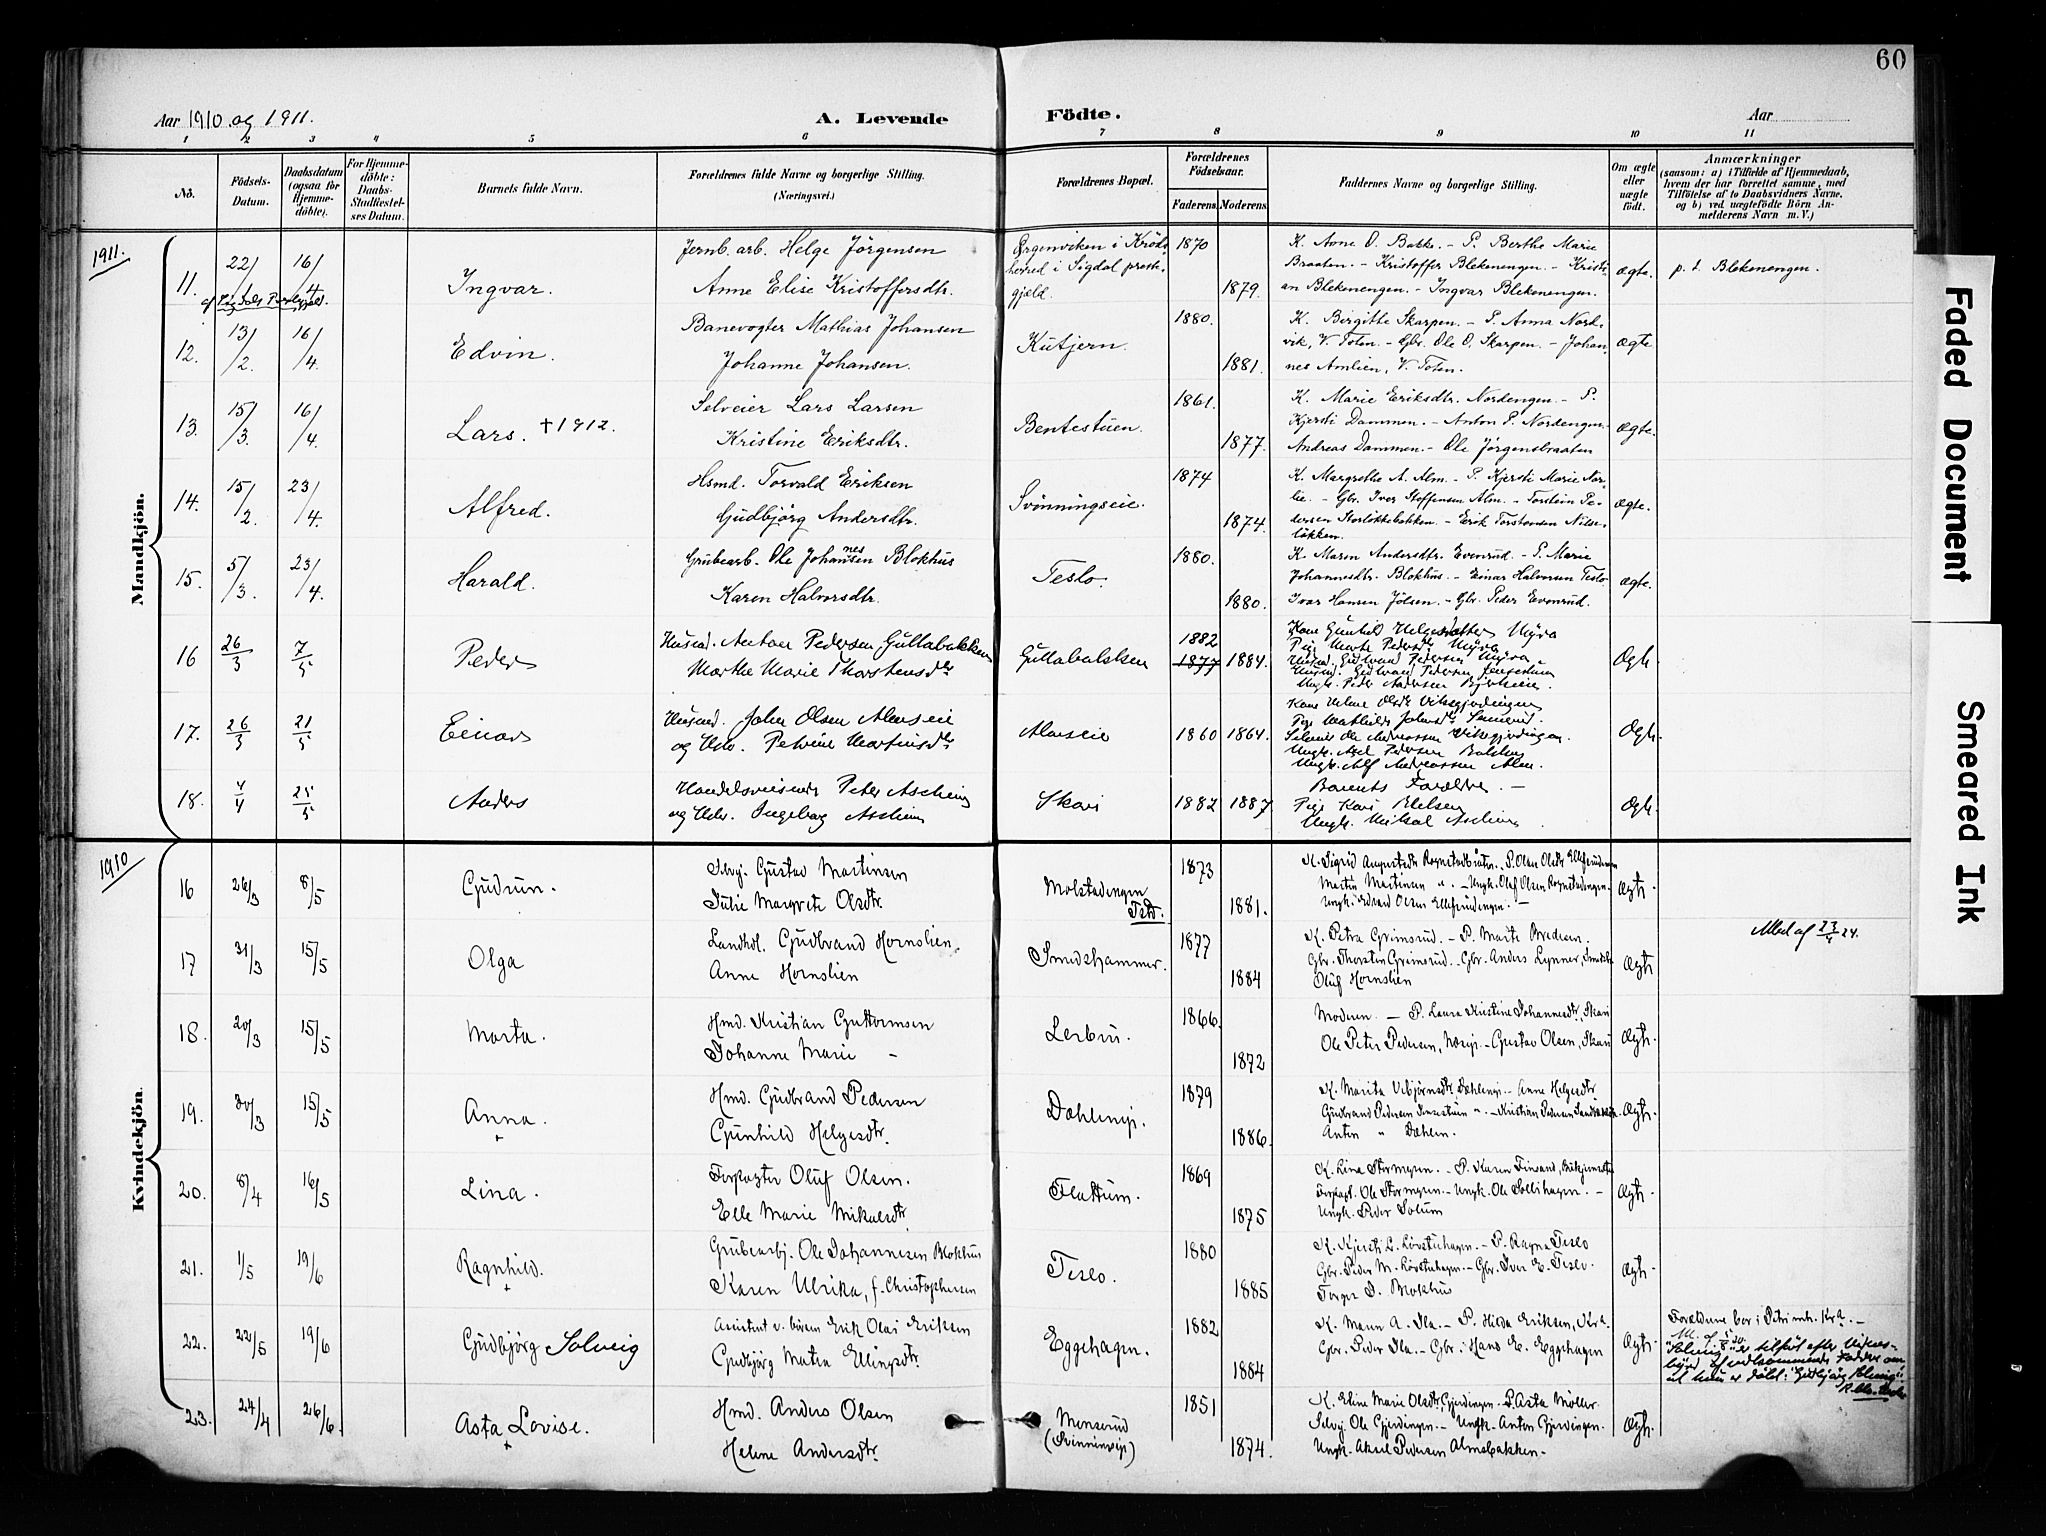 60
Aar 1910 og 1911.
A. Levende Födte.
Aar
1 2 3 4 5 6 7 8 9 10 11
No.
Födsels-Datum.
Daabsdatum (ogsaa for Hjemmedöbte).
For Hjemmedöbte: Daabs-Stadfæstelses Datum.
Barnets fulde Navn.
Forældrenes fulde Navne og borgerlige Stilling. (Næringsvei.)
Forældrenes Bopæl.
Forældrenes Födselsaar.
Faderens. Moderens.
Faddernes Navne og borgerlige Stilling.
Om ægte eller uægte födt.
Anmærkninger
(saasom: a) i Tilfælde af Hjemmedaab, hvem der har forrettet samme, med Tilföielse af to Daabsvidners Navne, og b) ved uægtefödte Börn Anmelderens Navn m. V.)
1911.
Mandkjön.
11. 22/1 16/4 Ingvar. Jernb. arb. Helge Jörgensen
Anne Elise Kristoffersdtr.
Ørgenviken i Kröds-
herred i Sigdal preste-
gjeld.
1870 1879.
K. Anne O. Bakke. - P. Berthe Marie
Braaten. - Kristoffer Blekenengen. - Kristi-
an Blekenengen. - Ingvar Blekenengen.
ægte. p. t. Blekenengen.
12. 13/2. 16/4. Edvin. Banevogter Mathias Johansen
Johanne Johansen.
Kutjern. 1880. 1881.
K. Birgitte Skarpen. - P. Anna Nord-
vik, V. Toten. - Gbr. Ole O. Skarpen. - Johan-
nes Amlien, V. Toten.
ægte
13. 15/3. 16/4. Lars. † 1912. Selveier Lars Larsen
Kristine Eriksdtr.
Bentestuen. 1861. 1877.
K. Marie Eriksdtr. Nordengen. - P.
Kjersti Dammen. - Anton P. Nordengen.
Andreas Dammen. - Ole Jörgensbraaten
ægte.
14. 15/2. 23/4. Alfred. Hsmd. Torvald Eriksen
Gudbjörg Andersdtr.
Svinningseie. 1874 1874.
K. Margrethe A. Alm. - P. Kjersti Marie
lie. - Gbr. Iver Stoffensen Alm. - Torstein Pe-
dersen Storlökkebakken. - Erik Torstensen Nilse-
lökken.
ægte.
15. 5/3. 23/4. Harald. Grubearb. Ole Johannesen Blokhus
Karen Halvorsdtr.
Teslo. 1880. 1880.
K. Maren Andersdtr. Evenrud. - P. Marie
Johannesdtr. Blokhus. - Einar Halvorsen Teslo
Ivar Hansen Jölsen. - Gbr. Peder Evenrud.
ægte.
16 26/3 7/5 Peder Husmd. Anton Pedersen Gullabakken
Marthe Marie Thorstensdtr
Gullabakken 1882 1877 1884.
Kone Gunhild Helgesdatter Myra
Pige Marte Pedersdtr Myra
Husmd. Gudbrand Pedersen Myra
Husmd. Gudbrand Pedersen Jensestuen
Ungk. Peder Andersen
Ægte.
17. 26/3 21/5 Einar Husmd. John Olsen Almseie
og Hstr. Petrine Martinsdtr
Almseie 1860 1864.
Kone Helene Olsdtr Viksgjerdingen
Pige Mathilde Johnsdtr
Selveier Ole Andreassen Viksgjerdingen.
Ungk. Axel Pedersen
Ungk. Alf Andreassen Alm.
Ægte.
18. 4/4 25/5 Anders Handelsreisende Peter Aschim
og Hstr. Ingeborg Aschim
Skari 1882 1887
Barnets Forældre. -
Pige Kari Ellefsen
Ungk. Mikal Aschim
Ægte.
1910
Kvindekjön.
16 26/3 8/5 Gudrun. Selvj. Gustav Martinsen
Julie Margrete Olsdtr.
Molstadengen
Teslo.
1873 1881.
K. Sigrid Augustsdtr Rognstad
Martin Martinsen " - Ungk. Olaf Olsen Rognstadengen.
Ungk. Edvard Olsen Ellefsrudengen. -
Ægte.
17 31/3 15/5 Olga Landhdl. Gudbrand Hornslien.
Anne Hornslien
Smedshammer. 1877 1884
K. Petra Grimsrud. - P. Marte Bredesen.
Gbr. Thorstin Grimsrud. - Gbr. Anders Lynner,
Oluf Hornslien
Ægte. Med. af 23/4 24.
18. 20/3 15/5 Marta. Hmd. Kristian Guttormsen
Johanne Marie -
Lerbru. 1866. 1872
Moderen. - P. Laura Kristine Johannesdtr, Skari
Ole Peter Pedersen, - Gustav Olsen, Skari
Ægte.
19. 30/3 15/5 Anna. + Hmd. Gudbrand Pedersen
Gunhild Helgesdtr.
Dæhlenejr. 1879 1886.
K. Marita Vebjørnsdtr Dæhlenejr - Anne Helgesdtr
Gudbrand Pedersen Jensestuen ". - Kristian Pedersen
Anton " Dæhlen.
Ægte.
20. 8/4 16/5 Lina. Forpagter Oluf Olsen.
Elle Marie Mikalsdtr.
Flattum. 1869 1875
K. Lina Stormyren. - P. Karen Finsand,
Forpagt. Ole Stormyren. - Ungk. Ole Sollihagen. -
Ungk. Peder Solum
Ægte.
21. 1/5 19/6 Ragnhild. + Grubearbj. Ole Johannesen Blokhus
Karen Ulrika, f. Christophersen
Teslo. 1880 1885
K. Kjersti L. Lövstuhagen. - P. Ragna Teslo
Gbr. Peder M. Lövstuhagen. - Gbr. Iver E. Teslo.
Torger J. Blokhus
Ægte.
22. 22/5 19/6 Gudbjörg Solveig Assistent v. börsen Erik Olai Eriksen
Gudbjörg Matea Ellingsdtr.
Eggehagen. 1882 1884
K. Maren A. Ila. - P. Hilda Eriksen, Kra.
Gbr. Peder Ila. - Gbr. Hans E. Eggehagen
Ægte.
Forældrene bor i Petri mh. Kra. -
"Solveig" er tilföiet efter
af vedkommende Fadder om
at hun er döbt: "Gudbjörg Solveig"
23. 24/4 26/6. Asta Lovise. + Hmd. Anders Olsen
Helene Andersdtr.
Monserud
(Svinninejr)
1851 1874.
K. Eline Marie Olsdtr Gjerdingen. P. Asta Möller
Selvej. Ole Gjerdingen. - Ungk. Anton Gjerdingen.
Ungk. Aksel Pedersen Almsbakken.
Ægte.
Faded Document
Smeared Ink